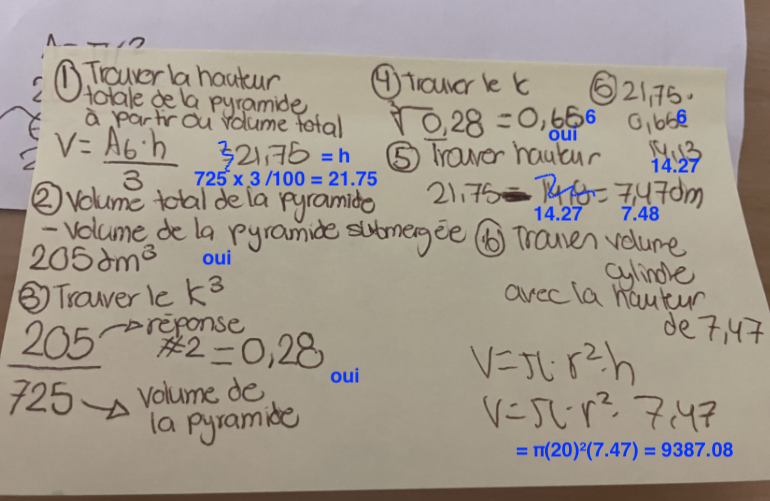 ① Trouver la hauteur
totale de la pyramide
à partir du volume total
V = Ab·h / 3
21,75 = h
725 x 3 /100 = 21.75
② Volume total de la pyramide
- volume de la pyramide submergée
205 dm³ oui
③ Trouver le k³
205 → réponse #2 = 0,28
oui
725 → volume de
la pyramide
④ trouver le k
∛0,28 = 0,656
oui
⑤ Trouver hauteur
21,75 - = 7,47dm
14.27 7.48
⑥ 21,75 ·
0,656
14.27
⑥ Trouver volume
cylindre
avec la hauteur
de 7,47
V = π · r² · h
V = π · r² · 7,47
= π(20)²(7.47) = 9387.08